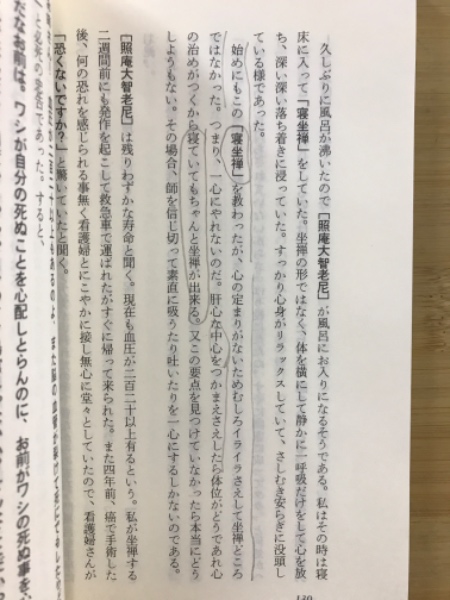 久しぶりに風呂が沸いたので[照庵大智老尼]が風呂にお入りになるそうである。私はその時は寝
床に入って「寝坐禅」をしていた。坐禅の形ではなく、体を横にして静かに一呼吸だけをして心を放
ち、深い深い落ち着きに浸っていた。すっかり心身がリラックスしていて、さしむき安らぎに没頭し
ている様であった。
始めにもこの「寝坐禅」を教わったが、心の定まりがないためむしろイライラさえして坐禅どころ
ではなかった。つまり、一心にやれないのだ。肝心な中心をつかまえさえしたら体位がどうであれ心
の治めがつくから寝ていてもちゃんと坐禅が出来る。又この要点を見つけていなかったら本当にどう
しようもない。その場合、師を信じ切って素直に吸うたり吐いたりを一心にするしかないのである。
[照庵大智老尼]は残りわずかな寿命と聞く。現在も血圧が二百二十以上有るという。私が坐禅する
二週間前にも発作を起こして救急車で運ばれたがすぐに帰って来られた。また四年前、癌で手術した
後、何の恐れを感じられる事無く看護婦とにこやかに接し無心に堂々としていたので、看護婦さんが
「恐くないですか?」と驚いていたと聞く。
だなお前は。ワシが自分の死ぬことを心配しとらんのに、お前がワシの死ぬ事を、
であった。すると、